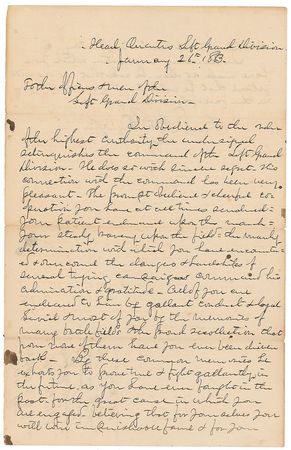 Head Quarters Left Grand Division
January 26th 1863.
To the officers & men of the
Left Grand Division—
In obedience to the order
of the highest authority the undersigned
relinquishes the command of the Left Grand
Division— He does so with sincere regret. His
connection with the command has been very
pleasant— The prompt obedience & cheerful co
operation you have at all times rendered—
Your patient endurance upon the march—
Your steady bravery upon the field— the manly
determination with which you have encounter
ed & overcome the dangers & hardships of
several trying campaigns command his
admiration & gratitude— All of you are
endeared to him by gallant conduct & loyal
service & most of you by the memories of
many battle fields & the proud recollection that
from none of them have you ever been driven
back— By these common memories he
exhorts you to prove true & fight gallantly in
the future, as you have ever fought in the
past— for the great cause in which you
are engaged— believing that for yourselves you
will win imperishable fame & for your